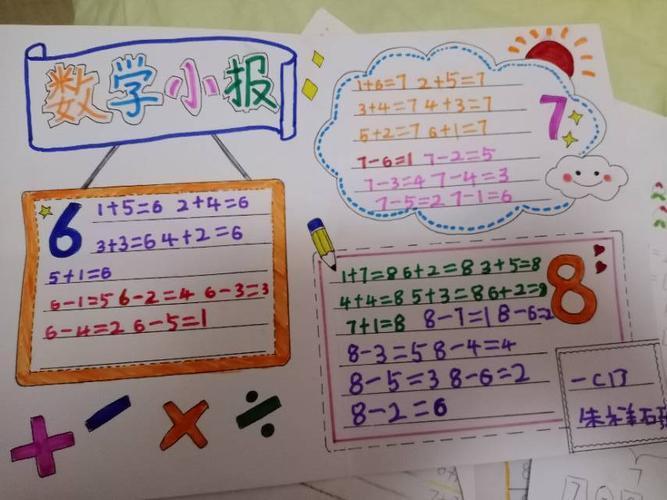 数学小报
6
1+5=6 2+4=6
3+3=6 4+2=6
5+1=6
6-1=5 6-2=4 6-3=3
6-4=2 6-5=1
+ - × ÷
7
1+6=7 2+5=7
3+4=7 4+3=7
5+2=7 6+1=7
7-6=1 7-2=5
7-3=4 7-4=3
7-5=2 7-1=6
8
1+7=8 6+2=8 3+5=8
4+4=8 5+3=8 6+2=8
7+1=8 8-7=1 8-6=2
8-3=5 8-4=4
8-5=3 8-6=2
8-2=6
朱